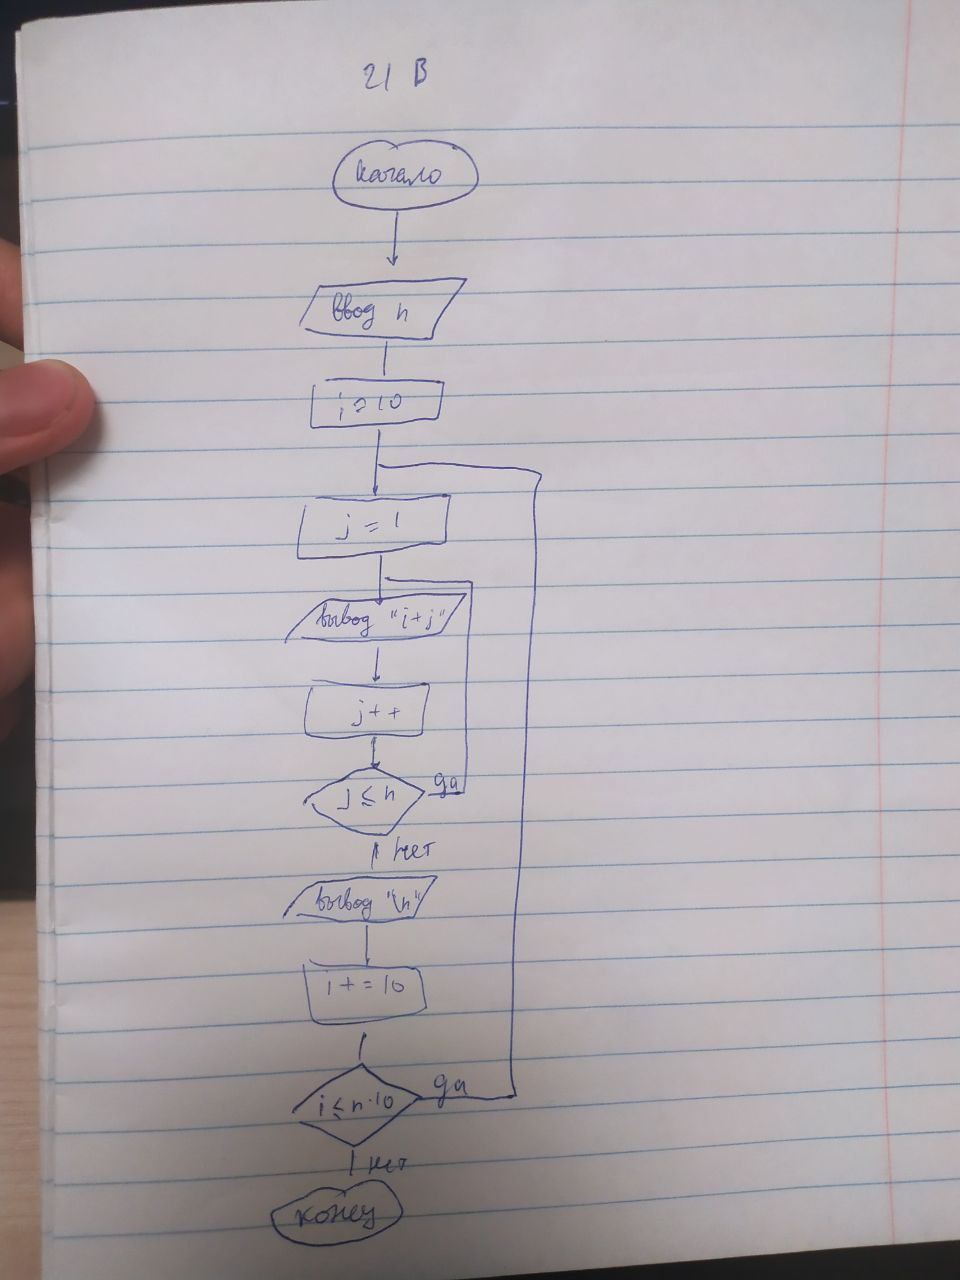 21 В
начало
ввод n
i = 10
j = 1
вывод "i+j"
j++
j ≤ n
да
нет
вывод "\n"
i += 10
i ≤ n·10
да
нет
конец